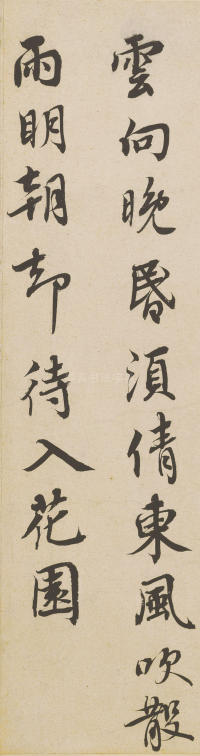 雲向晚昏須倩東風吹散
雨明朝却待入花園